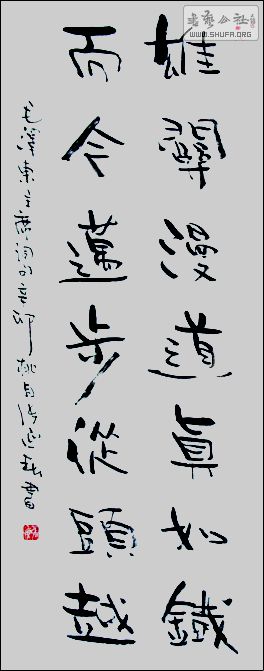 雄關漫道真如鐵
而今邁步從頭越
毛澤東主席詞句辛卯
書
書藝公社
WWW.SHUFA.ORG